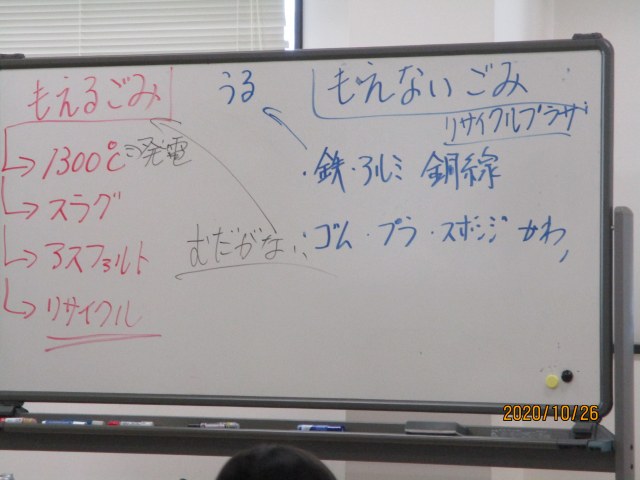 もえるごみ
うる
もえないごみ
リサイクルプラザ
1300℃⇒発電
・鉄・アルミ 銅線
スラグ
むだがない
・ゴム・プラ・スポンジ かわ,
アスファルト
リサイクル
2020/10/26